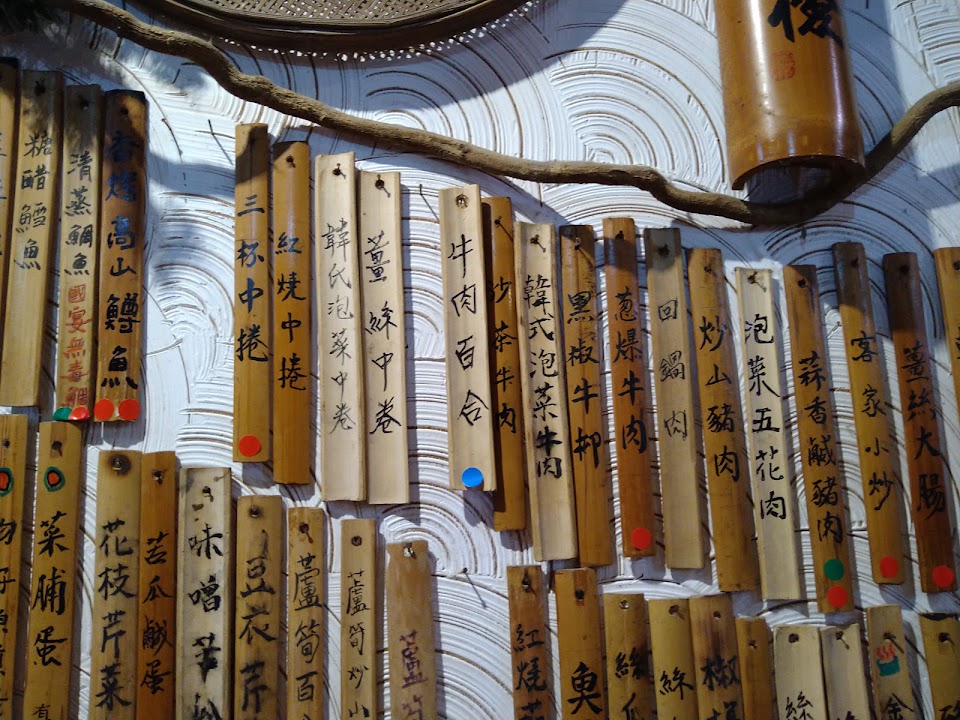 糖醋鱈魚
清蒸鯛魚
國宴無毒鯛
香烤高山鱒魚
三杯中捲
紅燒中捲
韓氏泡菜中卷
薑絲中卷
牛肉百合
炒茶牛肉
韓式泡菜牛肉
黑椒牛柳
蔥爆牛肉
回鍋肉
炒山豬肉
泡菜五花肉
蒜香鹹豬肉
客家小炒
薑絲大腸
菜脯蛋
花枝芹菜
苦瓜鹹蛋
味噌
豆衣芹
蘆筍百
蘆筍炒山
蘆
紅燒
魚
絲瓜
絲
椒
絲